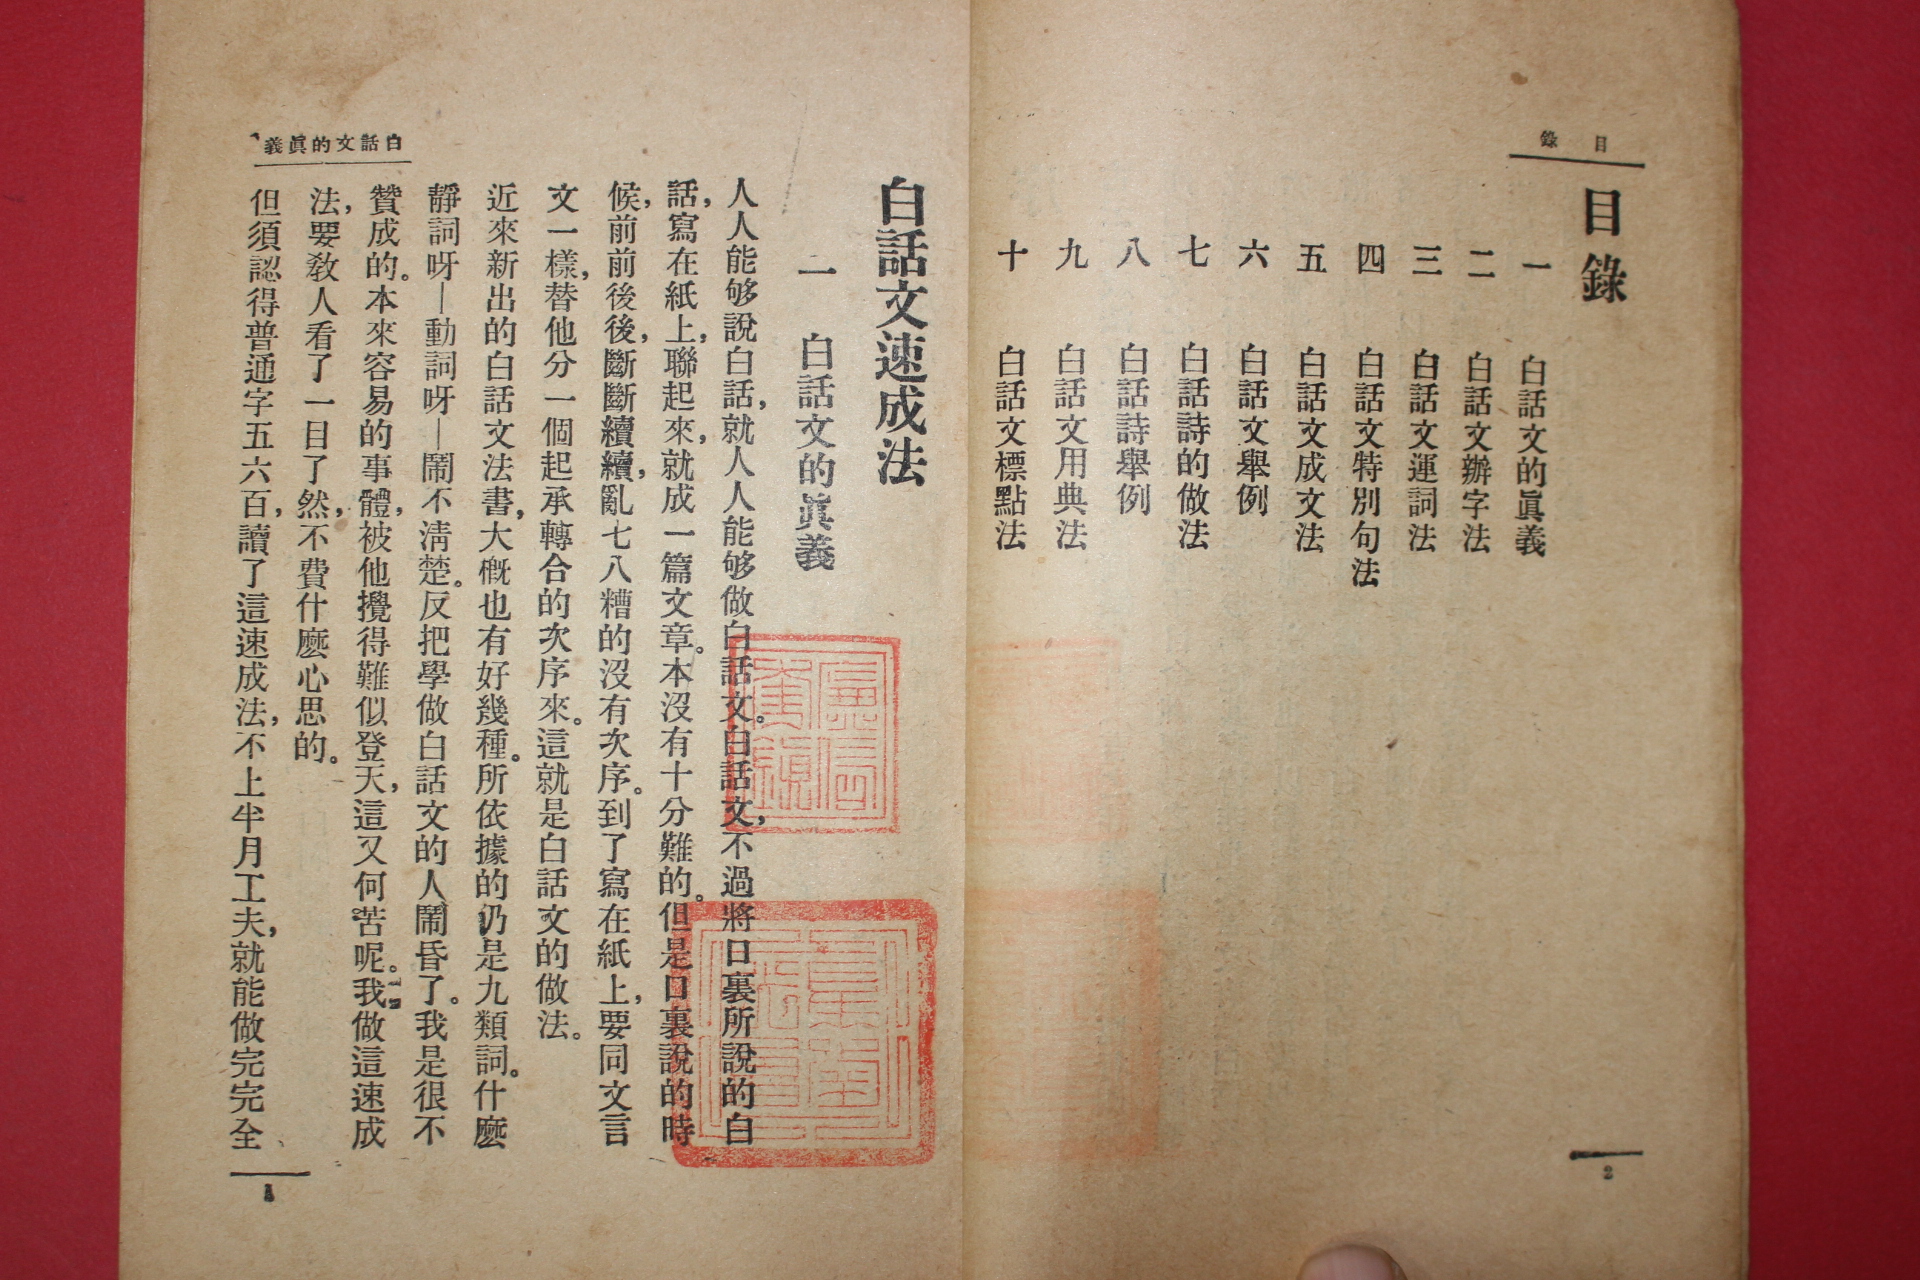 目錄
目錄
一 白話文的眞義
二 白話文辦字法
三 白話文運詞法
四 白話文特別句法
五 白話文成文法
六 白話文舉例
七 白話詩的做法
八 白話詩舉例
九 白話文用典法
十 白話文標點法
2
白話文的眞義
白話文速成法
一 白話文的眞義
人人能够說白話,就人人能够做白話文。白話文,不過將口裏所說的白
話,寫在紙上,聯起來,就成一篇文章。本沒有十分難的。但是口裏說的時
候,前前後後,斷斷續續,亂七八糟的沒有次序。到了寫在紙上,要同文言
文一樣,替他分一個起承轉合的次序來。這就是白話文的做法。
近來新出的白話文法書,大槪也有好幾種。所依據的仍是九類詞。什麼
靜詞呀—動詞呀—鬧不清楚。反把學做白話文的人鬧昏了。我是很不
贊成的。本來容易的事體,被他攪得難似登天,這又何苦呢。我做這速成
法,要敎人看了一目了然,不費什麼心思的。
但須認得普通字五六百,讀了這速成法,不上半月工夫,就能做完完全